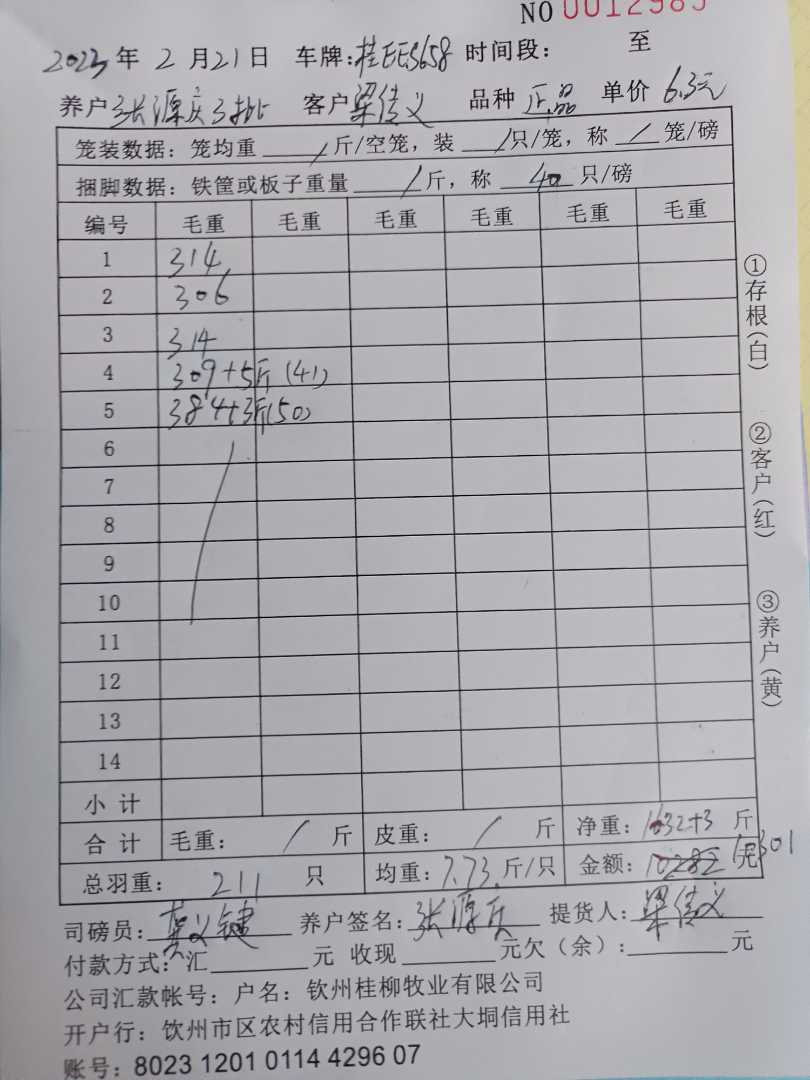 NO 0012985
2023年 2月21日 车牌:桂EES658 时间段: 至
养户 张源庆3批 客户 梁传义 品种 正品 单价 6.3元
笼装数据: 笼均重 / 斤/空笼, 装 / 只/笼, 称 / 笼/磅
捆脚数据: 铁筐或板子重量 / 斤, 称 40 只/磅
编号 毛重 毛重 毛重 毛重 毛重 毛重
1 314
2 306
3 314
4 309+5斤(41)
5 384+3斤(50)
6
7
8
9
10
11
12
13
14
小计
合计 毛重: / 斤 皮重: / 斤 净重: 1632+3 斤
总羽重: 211 只 均重: 7.73 斤/只 金额: 10282 元 10301
司磅员: 莫义键 养户签名: 张源庆 提货人: 梁传义
付款方式: 汇 元 收现 元欠(余): 元
公司汇款帐号: 户名: 钦州桂柳牧业有限公司
开户行: 钦州市区农村信用合作联社大垌信用社
账号: 8023 1201 0114 4296 07
①存根(白)
②客户(红)
③养户(黄)